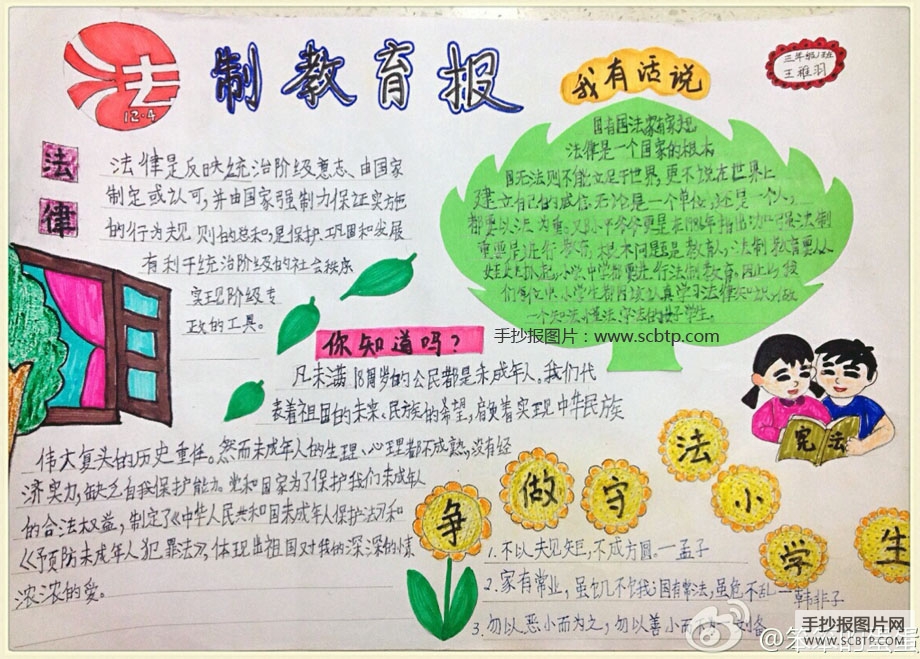 法
12·4
制教育报
我有话说
三年级1班
王雅羽
法律
法律是反映统治阶级意志、由国家
制定或认可,并由国家强制力保证实施
的行为规则的总和,是保护、巩固和发展
有利于统治阶级的社会秩序
实现阶级专
政的工具。
国有国法家有家规
法律是一个国家的根本
国无法则不能立足于世界,更不说在世界上
建立自己的威信,无论是一个单位,还是一个人,
都要以法为重。
重要是进行教育,根本问题是教育人,法制教育要从
娃娃抓起,小学中学都要进行法制教育,因此
们
中小学生都应该认真学习法律知识,做
一个知法、懂法、学法的好学生。
手抄报图片:www.scbtp.com
你知道吗?
凡未满18周岁的公民都是未成年人。我们代
表着祖国的未来、民族的希望,肩负着实现中华民族
伟大复头的历史重任。然而未成年人的生理、心理都不成熟,没有经
济实力,缺乏自我保护能力。党和国家为了保护我们未成年人
的合法权益,制定了《中华人民共和国未成年人保护法》和
《予预防未成年人犯罪法》,体现出祖国对我的深深的情
浓浓的爱。
宪法
争做守法小学生
1.不以规矩,不成方圆。—孟子
2.家有常业,虽饥不饿;国有常法,虽危不乱—韩非子
3.勿以恶小而为之,勿以善小而不为—刘备
手抄报图片网
WWW.SCBTP.COM